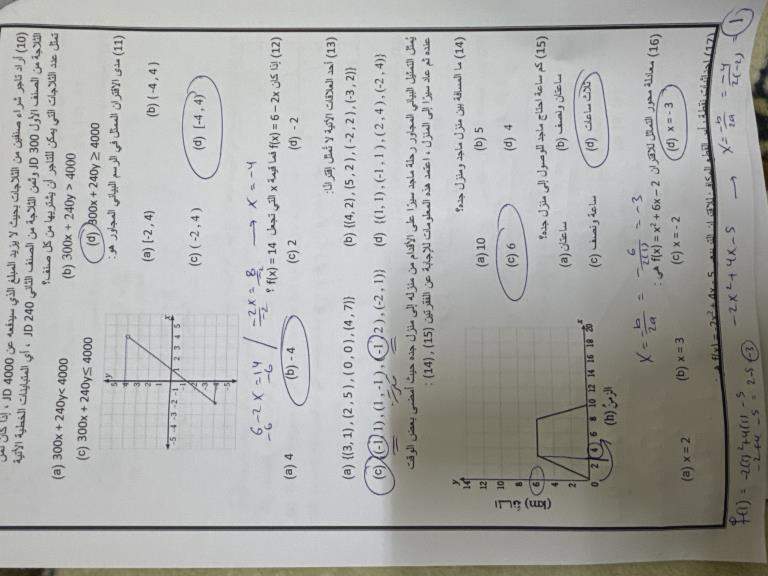 (10) أراد تاجر شراء صنفين من الثلاجات بحيث لا يزيد المبلغ الذي سيدفعه عن JD 4000 ، إذا كان ثمن
الثلاجة من الصنف الأول JD 300 وثمن الثلاجة من الصنف الثاني JD 240 ، أي المتباينات الخطية الآتية
تمثل عدد الثلاجات التي يمكن للتاجر أن يشتريها من كل صنف؟
(a) 300x + 240y< 4000
(b) 300x + 240y > 4000
(c) 300x + 240y≤ 4000
(d) 300x + 240y ≥ 4000
(11) مدى الاقتران الممثل في الرسم البياني المجاور هو:
(a) [-2, 4)
(b) (-4, 4)
(c) (-2, 4)
(d) [-4, 4)
(12) إذا كان f(x) = 6 – 2x فما قيمة x التي تجعل f(x) = 14 ؟
(a) 4
(b) -4
(c) 2
(d) -2
6-2x=14
-6 -6
-2x = 8
-2 -2
→ x = -4
(13) أحد العلاقات الآتية لا تمثل إقترانا:
(a) {(3, 1), (2, 5), (0, 0), (4, 7)}
(b) {(4, 2), (5, 2), (-2, 2), (-3, 2)}
(c) {(-1, 1), (1, -1), (-1, 2), (-2, 1)}
(d) {(1, 1), (-1, 1), (2, 4), (-2, 4)}
يمثل التمثيل البياني المجاور رحلة ماجد سيرا على الأقدام من منزله إلى منزل جده حيث أمضى بعض الوقت
عنده ثم عاد سيرا إلى المنزل ، اعتمد هذه المعلومات للإجابة عن الفقرتين (14)، (15) :
(14) ما المسافة بين منزل ماجد ومنزل جده؟
(a) 10
(b) 5
(c) 6
(d) 4
(15) كم ساعة احتاج ماجد للوصول الى منزل جده؟
(a) ساعتان
(b) ساعتان ونصف
(c) ساعة ونصف
(d) ثلاث ساعات
الزمن (h)
(16) معادلة محور التماثل للاقتران f(x) = x² + 6x – 2 هي :
(a) x = 2
(b) x = 3
(c) x = - 2
(d) x = -3
x = -b/2a = -6/2(1) = -3
-2x² + 4x - 5 → x = -b/2a = -4/2(-2) = 1
f(1) = -2(1)²+4(1)-5
-2+4-5 = 2-5 -3